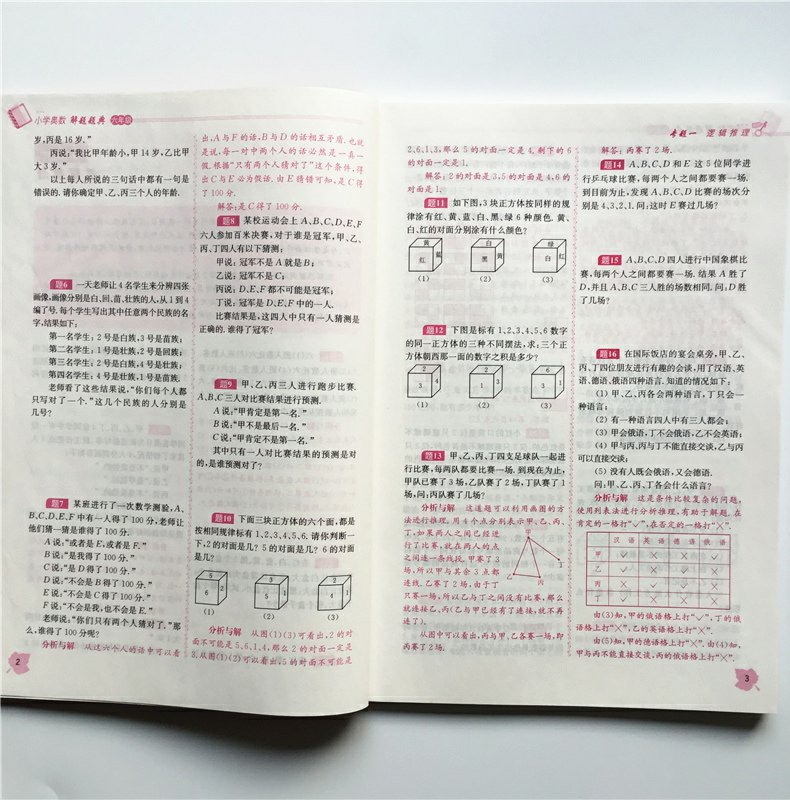 小学奥数 解题题典 六年级
岁,丙是 16 岁.”
丙说:“我比甲年龄小,甲 14 岁,乙比甲
大 3 岁.”
以上每人所说的三句话中都有一句是
错误的. 请你确定甲、乙、丙三个人的年龄.
题6 一天老师让 4 名学生来分辨四张
画像,画像分别是白、回、苗、壮族的人,从 1 到 4
编了号. 每个学生写出其中任意两个民族的名
字,结果如下:
第一名学生: 2 号是白族,3 号是苗族;
第二名学生: 1 号是壮族,2 号是回族;
第三名学生: 2 号是壮族,4 号是苗族;
第四名学生: 4 号是壮族,1 号是苗族.
老师看了这些结果说,“你们每个人都
只写对了一个.”这几个民族的人分别是
几号?
题7 某班进行了一次数学测验,A、
B、C、D、E、F 中有一人得了 100 分,老师让
他们猜一猜是谁得了 100 分.
A 说:“或者是 E,或者是 F.”
B 说:“是我得了 100 分.”
C 说:“是 D 得了 100 分.”
D 说:“不会是 B 得了 100 分.”
E 说:“不会是 C 得了 100 分.”
F 说:“不会是我,也不会是 E.”
老师说:“你们只有两个人猜对了.”那
么,谁得了 100 分呢?
分析与解 从这六个人的话中可以看
2
出,A 与 F 的话,B 与 D 的话相互矛盾. 也就
是说,每一对中两个人的话必然是一真一
假. 根据“只有两个人猜对了”这个条件,得
出 C 与 E 必为假话. 由 E 猜错可知,是 C 得
了 100 分.
解答:是 C 得了 100 分.
题8 某校运动会上 A、B、C、D、E、F
六人参加百米决赛,对于谁是冠军,甲、乙、
丙、丁四人有以下猜测:
甲说: 冠军不是 A 就是 B;
乙说: 冠军不是 C;
丙说: D、E、F 都不可能是冠军;
丁说: 冠军是 D、E、F 中的一人.
比赛结果是:这四人中只有一人猜测是
正确的. 谁得了冠军?
题9 甲、乙、丙三人进行跑步比赛.
A、B、C 三人对比赛结果进行预测.
A 说:“甲肯定是第一名.”
B 说:“甲不是最后一名.”
C 说:“甲肯定不是第一名.”
其中只有一人对比赛结果的预测是对
的,是谁预测对了?
题10 下面三块正方体的六个面,都是
按相同规律标有 1、2、3、4、5、6. 请你判断一
下,2 的对面是几? 5 的对面是几? 6 的对面
是几?
5
6
(1)
3
2
(2)
2
4
(3)
分析与解 从图(1)(3)可看出,2 的对
面不可能是 5,6,1,4,那么 2 的对面一定是
3. 从图(1)(2)可以看出,5 的对面不可能是
专题一 逻辑推理
2,6,1,3,那么 5 的对面一定是 4. 剩下的 6
的对面一定是 1.
解答: 2 的对面是 3,5 的对面是 4,6 的
对面是 1.
题11 如下图,3 块正方体按同样的规
律涂有红、黄、蓝、白、黑、绿 6 种颜色. 黄、
白、红的对面分别涂有什么颜色?
黄
红
蓝
(1)
白
黑
黄
(2)
绿
白
红
(3)
题12 下图是标有 1、2、3、4、5、6 数字
的同一正方体的三种不同摆法,求:三个正
方体朝西那一面的数字之积是多少?
2
3
4
(1)
2
1
3
(2)
6
3
1
(3)
题13 甲、乙、丙、丁四支足球队一起进
行比赛,每两队都要比赛一场. 到现在为止,
甲队已赛了 3 场,乙队赛了 2 场,丁队赛了 1
场,问:丙队赛了几场?
分析与解 这道题可以利用画图的方
法进行推理. 用 4 个点分别表示甲、乙、丙、
丁,如果两人之间已经进
行了比赛,就在两人的点
之间连一条线段. 甲赛了 3
场,所以甲与其余 3 点都
连线. 乙赛了 2 场,由于丁
只赛一场,所以乙与丁之间没有比赛,那么
就连接乙、丙(乙与甲已经有了连接,就不再
连了).
从图中可以看出,丙与甲、乙各赛一场,即
丙赛了 2 场.
解答:丙赛了 2 场.
题14 A、B、C、D 和 E 这 5 位同学进
行乒乓球比赛,每两个人之间都要赛一场.
到目前为止,发现 A、B、C、D 比赛的场次分
别是 4、3、2、1. 问:这时 E 赛过几场?
题15 A、B、C、D 四人进行中国象棋比
赛,每两个人之间都要赛一场. 结果 A 胜了
D,并且 A、B、C 三人胜的场数相同. 问: D 胜
了几场?
题16 在国际饭店的宴会桌旁,甲、乙、
丙、丁四位朋友进行有趣的会谈,用了汉语、英
语、德语、俄语四种语言. 知道的情况如下:
(1) 甲、乙、丙各会两种语言,丁只会一
种语言;
(2) 有一种语言四人中有三人都会;
(3) 甲会俄语,丁不会俄语,乙不会英语;
(4) 甲与丙、丙与丁不能直接交谈,乙与丙
可以直接交谈;
(5) 没有人既会俄语,又会德语.
问:甲、乙、丙、丁各会什么语言?
分析与解 这是条件比较复杂的问题,
使用列表法进行分析推理,有助于解题. 在
肯定的一格打“√”,在否定的一格打“×”.
汉语 英语 德语 俄语
甲 √ × × √
乙 √ × √ ×
丙 × √ √ ×
丁 √ × × ×
由(3)知,甲的俄语格上打“√”,丁的俄
语格上打“×”,乙的英语格上打“×”.
由(5)知,甲的德语格上打“×”. 由(4)知,
甲与丙不能直接交谈,丙的俄语格上打“×”.
3